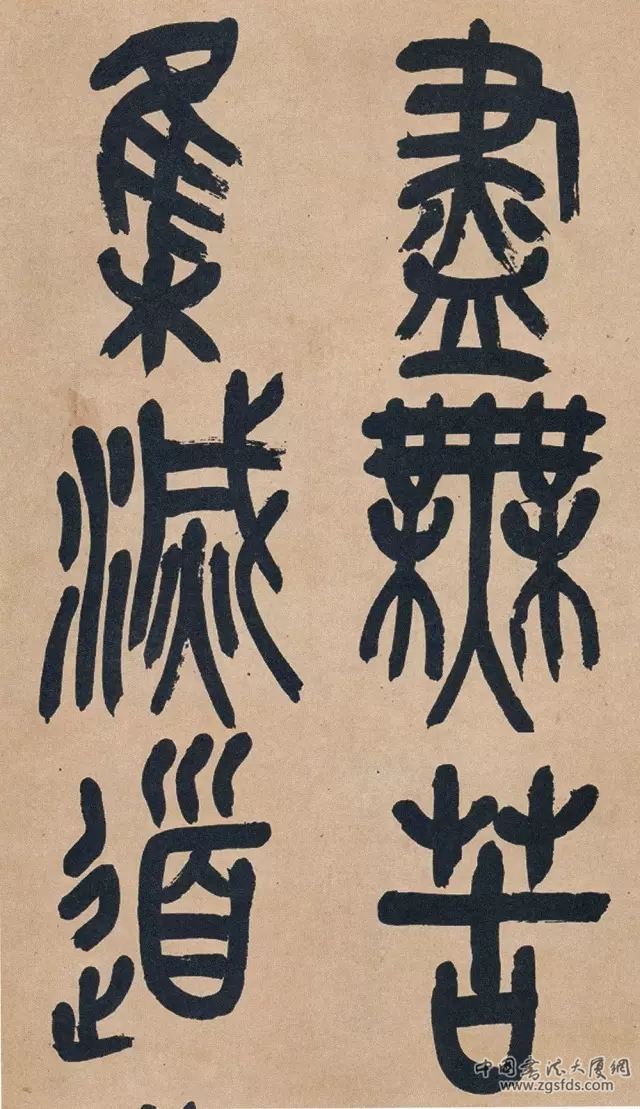 盡無苦
集滅道
中国书法大厦網
www.zgsfds.com